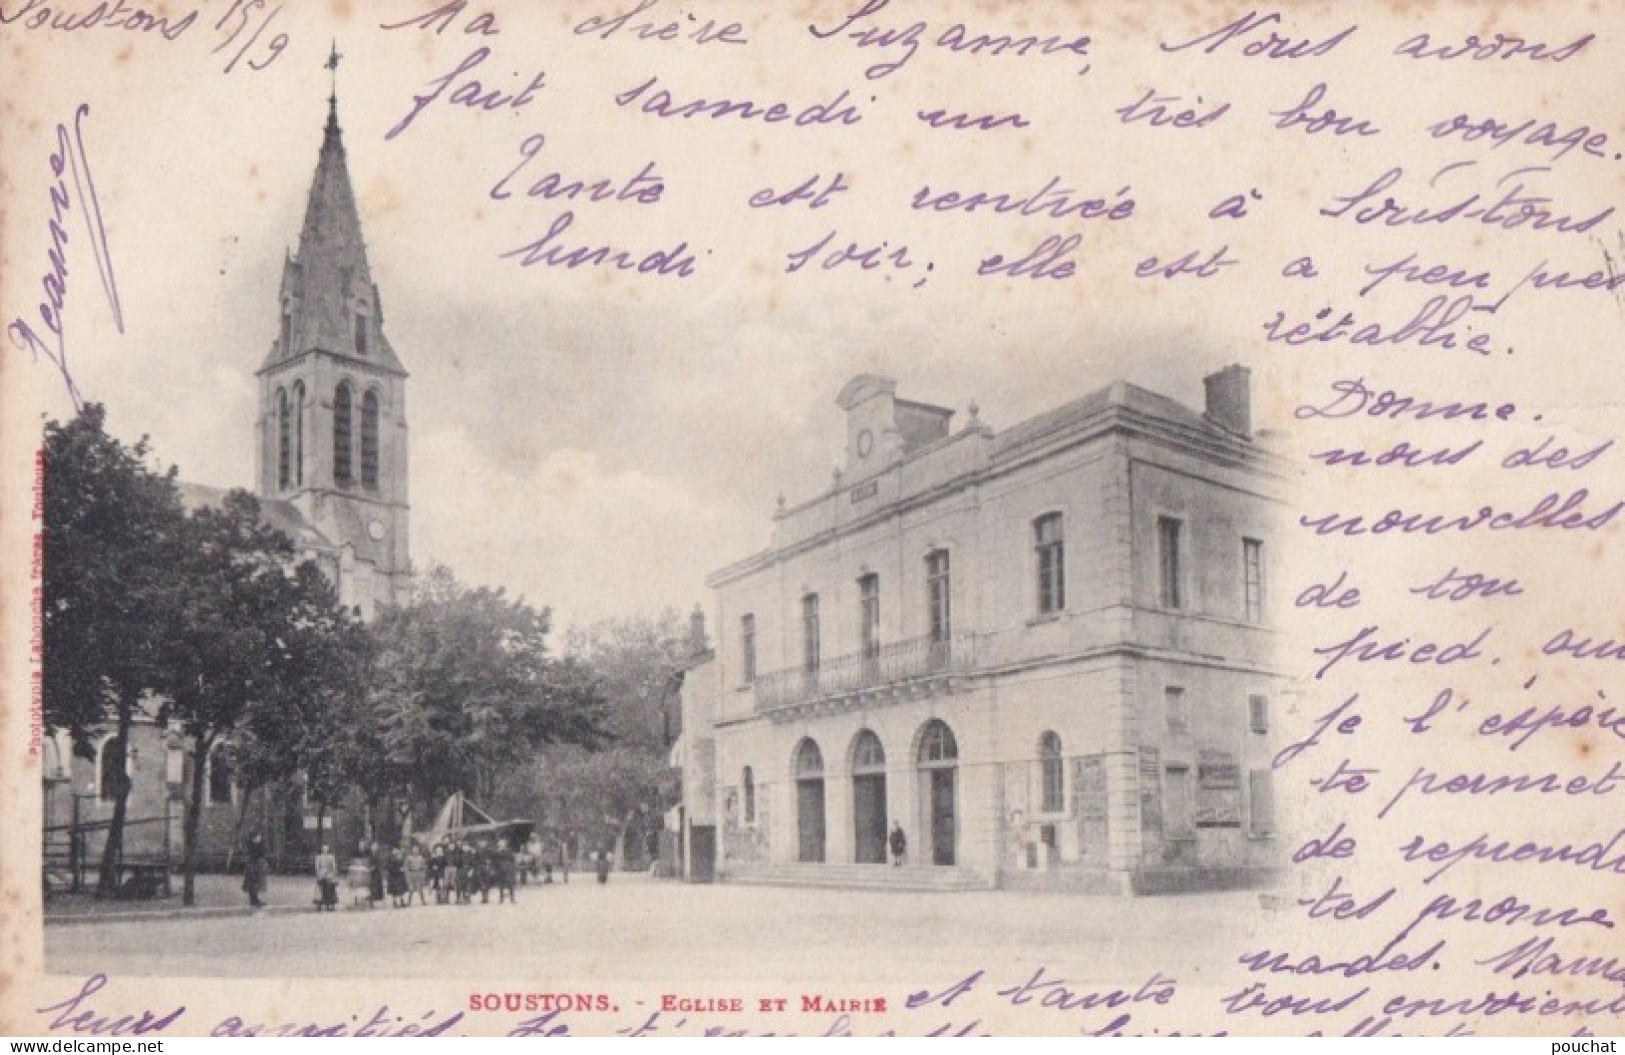 Soustons 15/9 Ma chère Suzanne, Nous avons
fait samedi un très bon voyage.
Tante est rentrée à Soustons
lundi soir; elle est à peu près
rétablie.
Donne.
nous des
nouvelles
de ton
pied, qui
je l'espère
te permet
de reprendre
tes prome
nades. Maman
et tante vous envoient
leurs amitiés. Je t'embrasse bien
Jeanne
SOUSTONS. - EGLISE ET MAIRIE
Phototypie Labouche frères, Toulouse
delcampe.net
pouchat